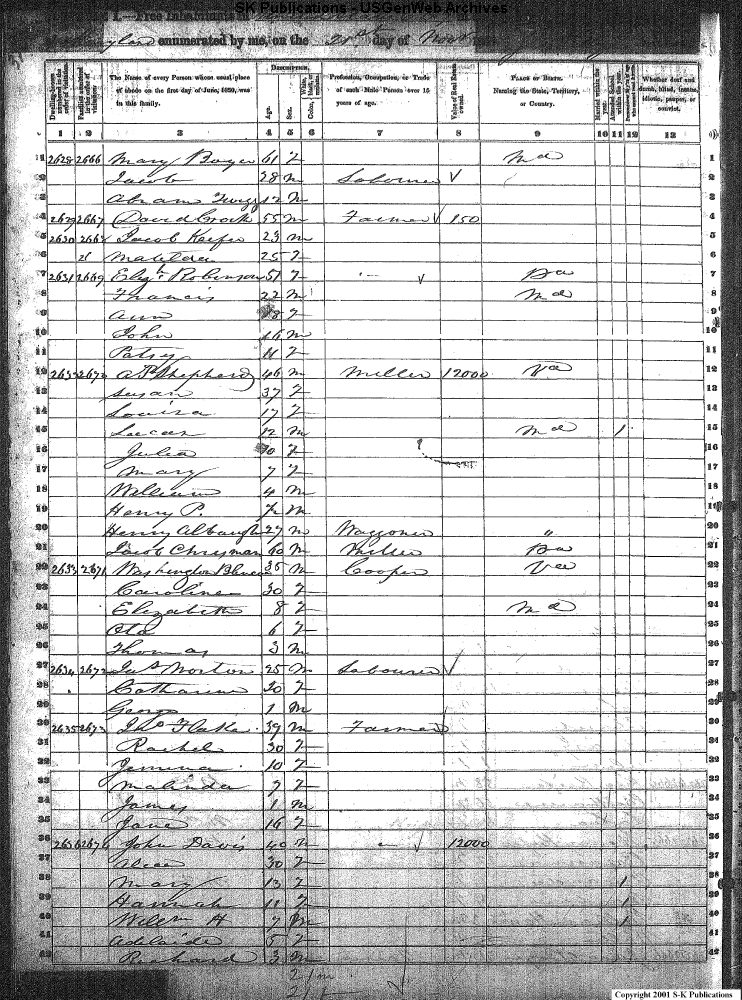 SK Publications - USGenWeb Archives
I.—Free Inhabitants in
Maryland enumerated by me, on the day of Novr
Dwelling-houses numbered in the order of visitation.
Families numbered in the order of visitation.
The Name of every Person whose usual place of abode on the first day of June, 1850, was in this family.
Description.
Age.
Sex.
Color, White, black, or mulatto.
Profession, Occupation, or Trade of each Male Person over 15 years of age.
Value of Real Estate owned.
Place of Birth. Naming the State, Territory, or Country.
Married within the year.
Attended School within the year.
Whether deaf and dumb, blind, insane, idiotic, pauper, or convict.
1 2 3 4 5 6 7 8 9 10 11 12 13
1 2628 2666 Mary Boyer 61 F Md 1
2 Jacob 28 M Labourer 2
3 Abram Twigg 12 M 3
4 2629 2667 David Crock 55 M Farmer 150 4
5 2630 2668 Jacob Keefer 23 M 5
6 Matilda 25 F 6
7 2631 2669 Eliz. Robinson 51 F Pa 7
8 Francis 22 M Md 8
9 Ann 18 F 9
10 John 16 M 10
11 Patsy 11 F 11
12 2632 2670 Shepherd 46 M Miller 12000 Va 12
13 Susan 37 F 13
14 Louisa 17 F 14
15 12 M Md 1 15
16 Julia 10 F 16
17 Mary 7 F 17
18 William 4 M 18
19 Henry P. M 19
20 Henry Albaugh 27 M Waggoner " 20
21 Jacob Chrisman 60 M Miller Pa 21
22 2633 2671 Washington 35 M Cooper Va 22
23 Caroline 30 F 23
24 Elizabeth 8 F Md 24
25 6 F 25
26 Thomas 3 M 26
27 2634 2672 Jas Morton 25 M Labourer 27
28 Catharine 30 F 28
29 George 1 M 29
30 2635 2673 Jno Flake 39 M Farmer 30
31 Rachel 30 F 31
32 Jemima 10 F 32
33 Malinda 7 F 33
34 James 1 M 34
35 Jane 16 F 35
36 2636 2674 John Davis 40 M 12000 36
37 30 F 37
38 Mary 13 F 1 38
39 Hannah 11 F 1 39
40 Willm H 7 M 1 40
41 Adelaide 5 F 41
42 Richard 3 M 42
21 m
Copyright 2001 S-K Publications